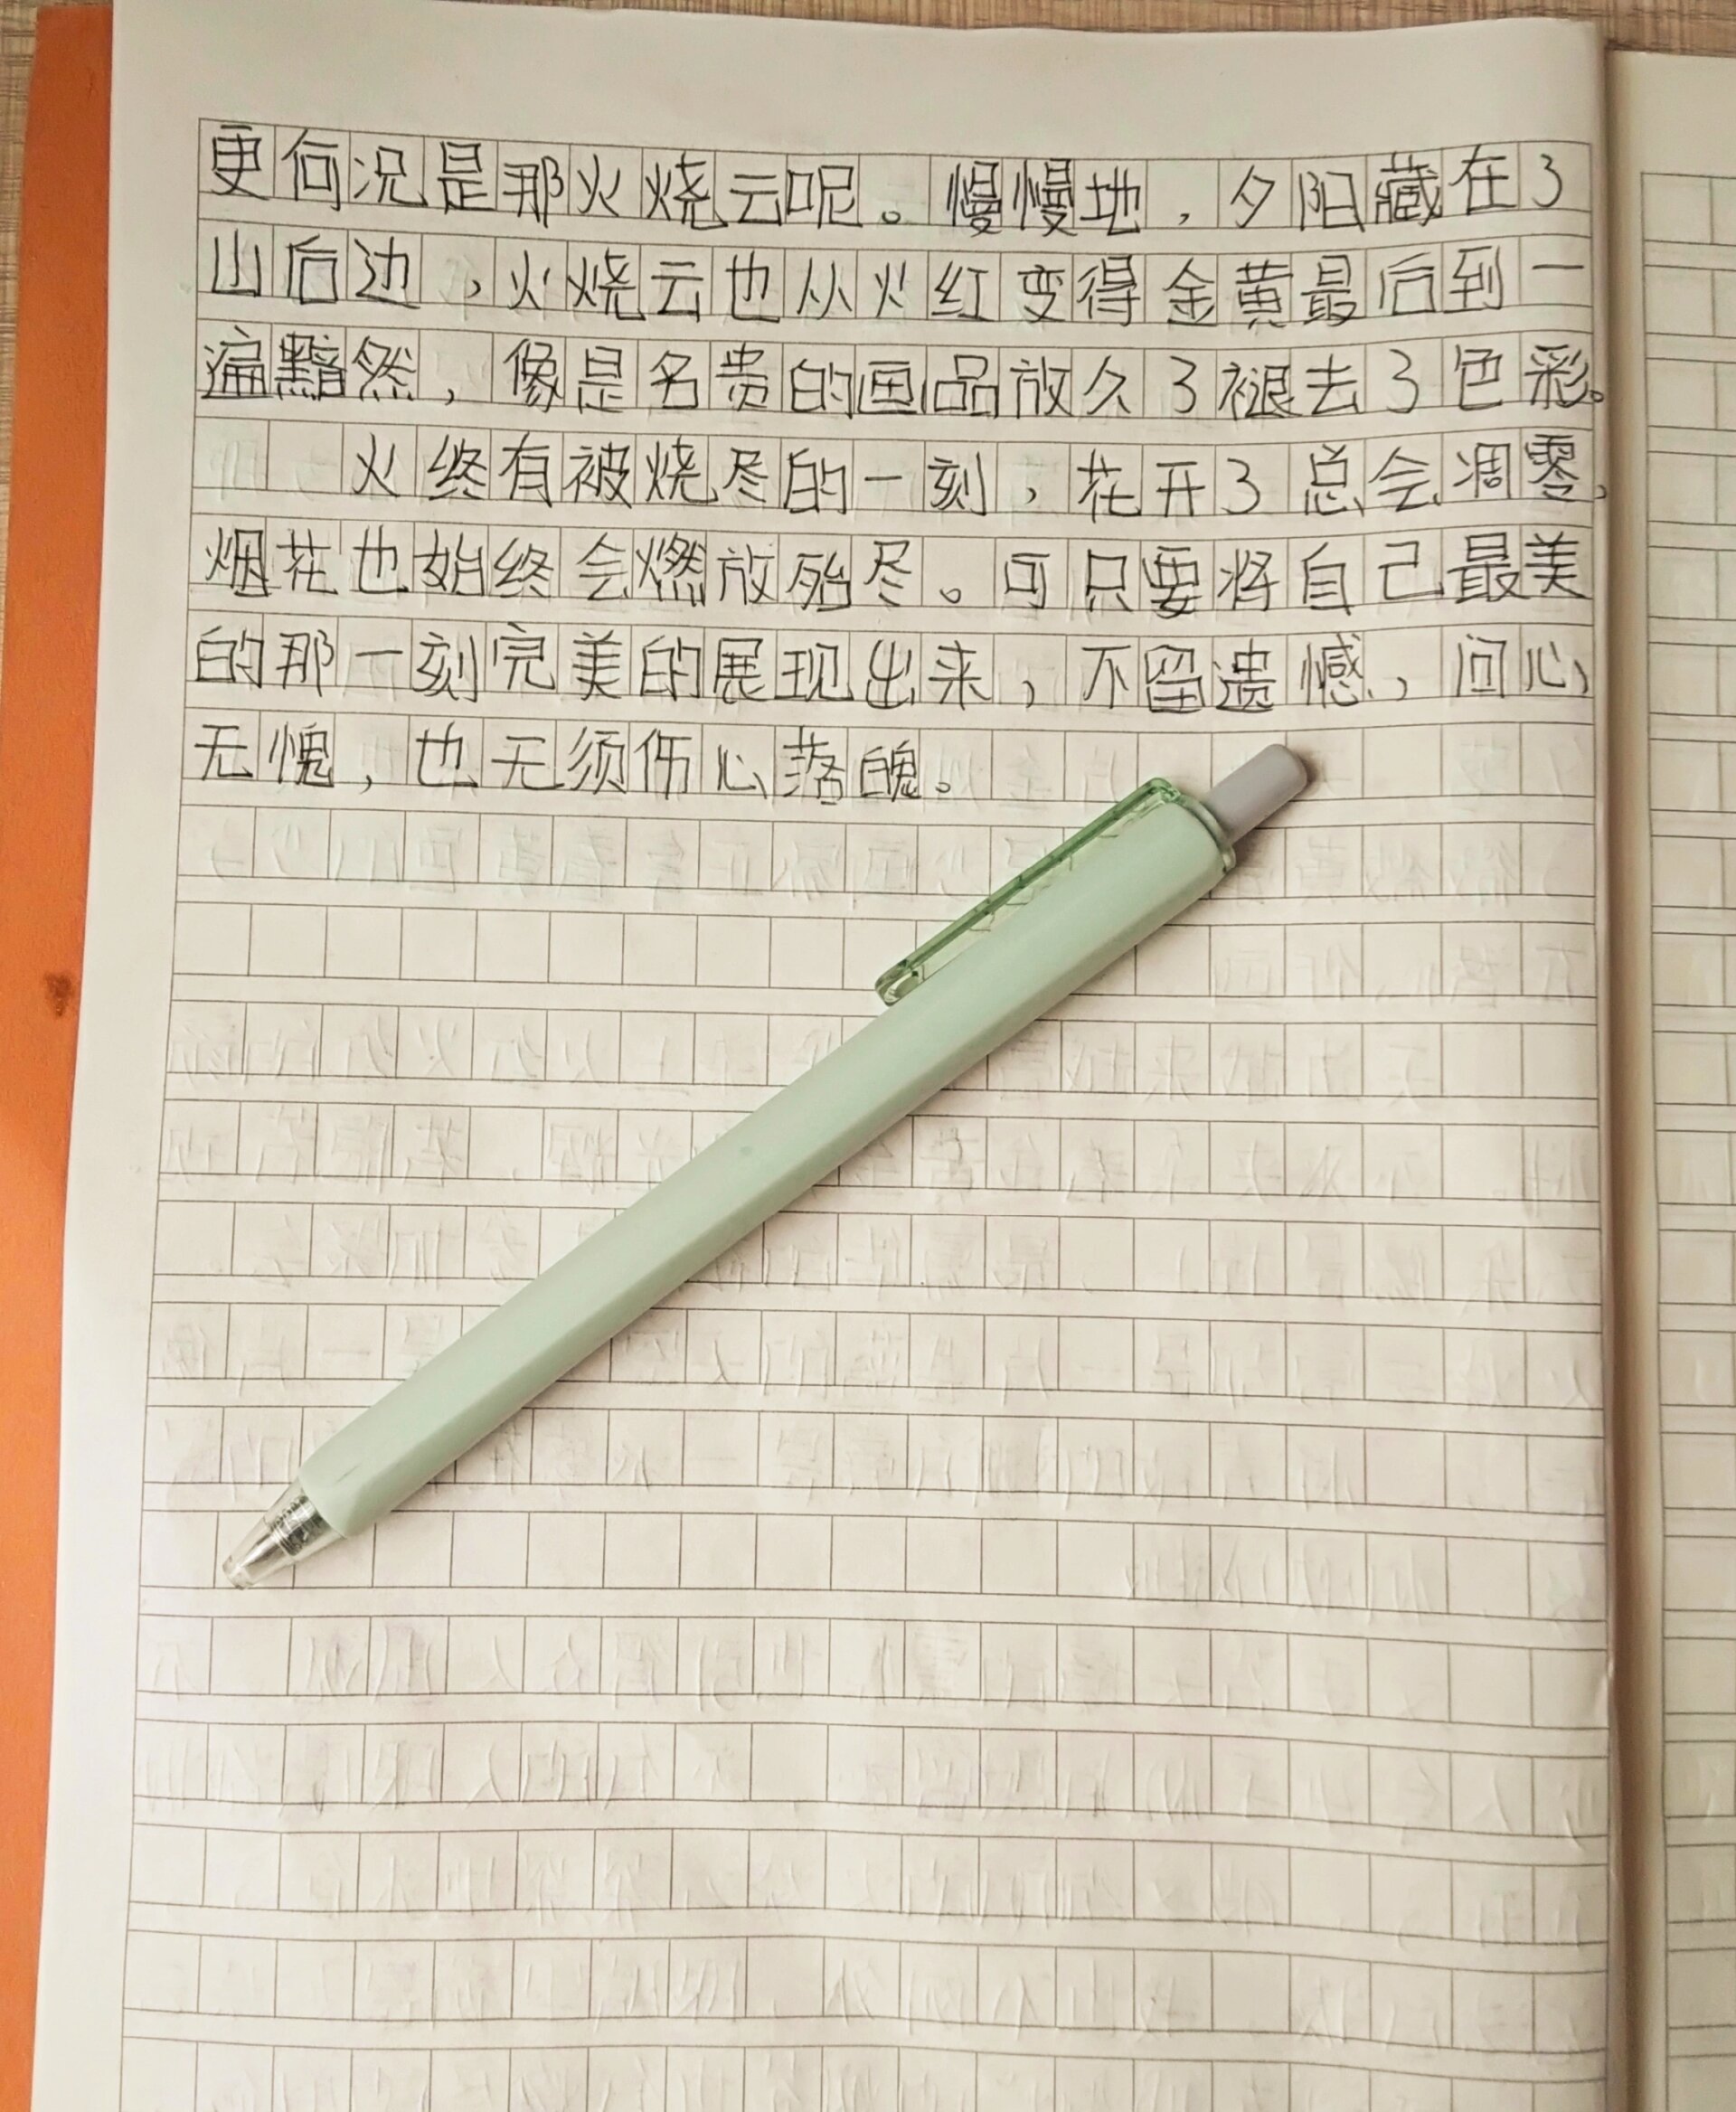 更何况是那火烧云呢。慢慢地，夕阳藏在了
山后边，火烧云也从火红变得金黄最后到一
遍黯然，像是名贵的画品放久了褪去了色彩。
火终有被烧尽的一刻，花开了总会凋零，
烟花也始终会燃放殆尽。可只要将自己最美
的那一刻完美的展现出来，不留遗憾，问心
无愧，也无须伤心落魄。